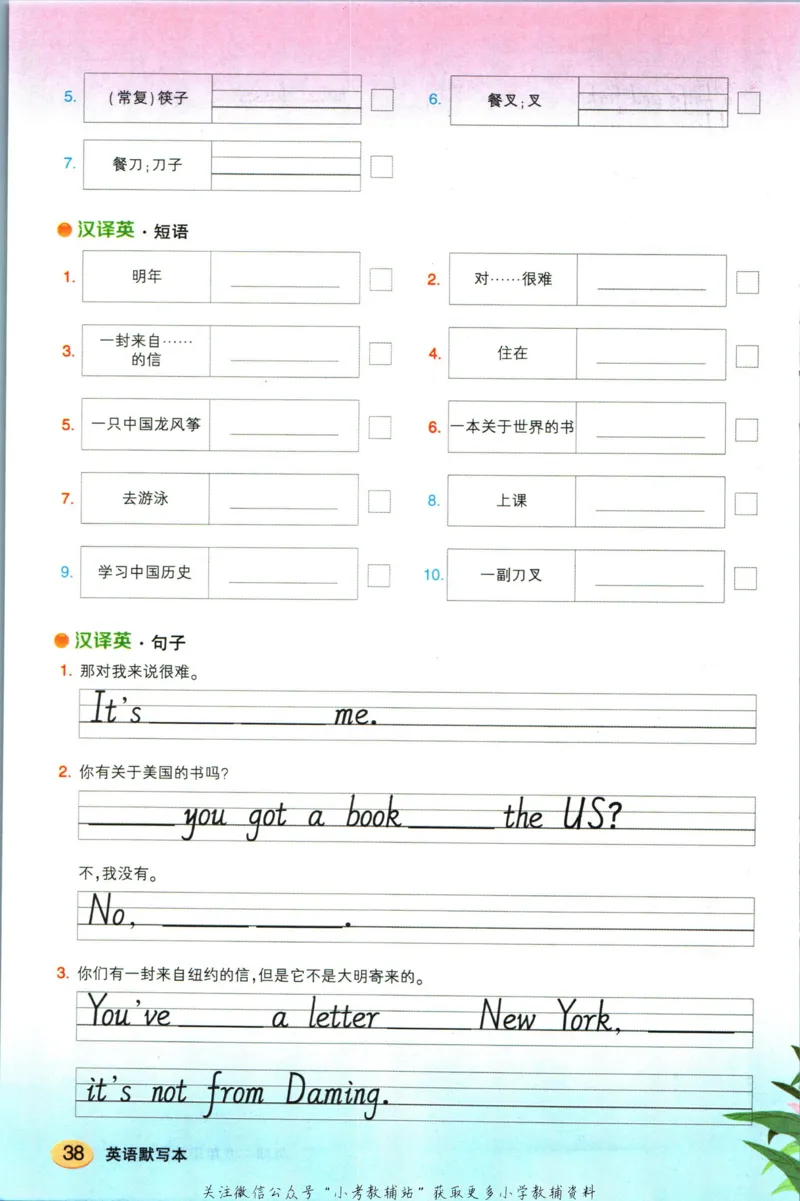 5. (常复)筷子
6. 餐叉;叉
7. 餐刀;刀子
汉译英 · 短语
1. 明年
2. 对……很难
3. 一封来自……
的信
4. 住在
5. 一只中国龙风筝
6. 一本关于世界的书
7. 去游泳
8. 上课
9. 学习中国历史
10. 一副刀叉
汉译英 · 句子
1. 那对我来说很难。
It's ______ ______ me.
2. 你有关于美国的书吗?
______ you got a book ______ the US?
不,我没有。
No, ______ ______.
3. 你们有一封来自纽约的信,但是它不是大明寄来的。
You've ______ a letter ______ New York, ______
it's not from Daming.
38 英语默写本
关注微信公众号“小考教辅站”获取更多小学教辅资料